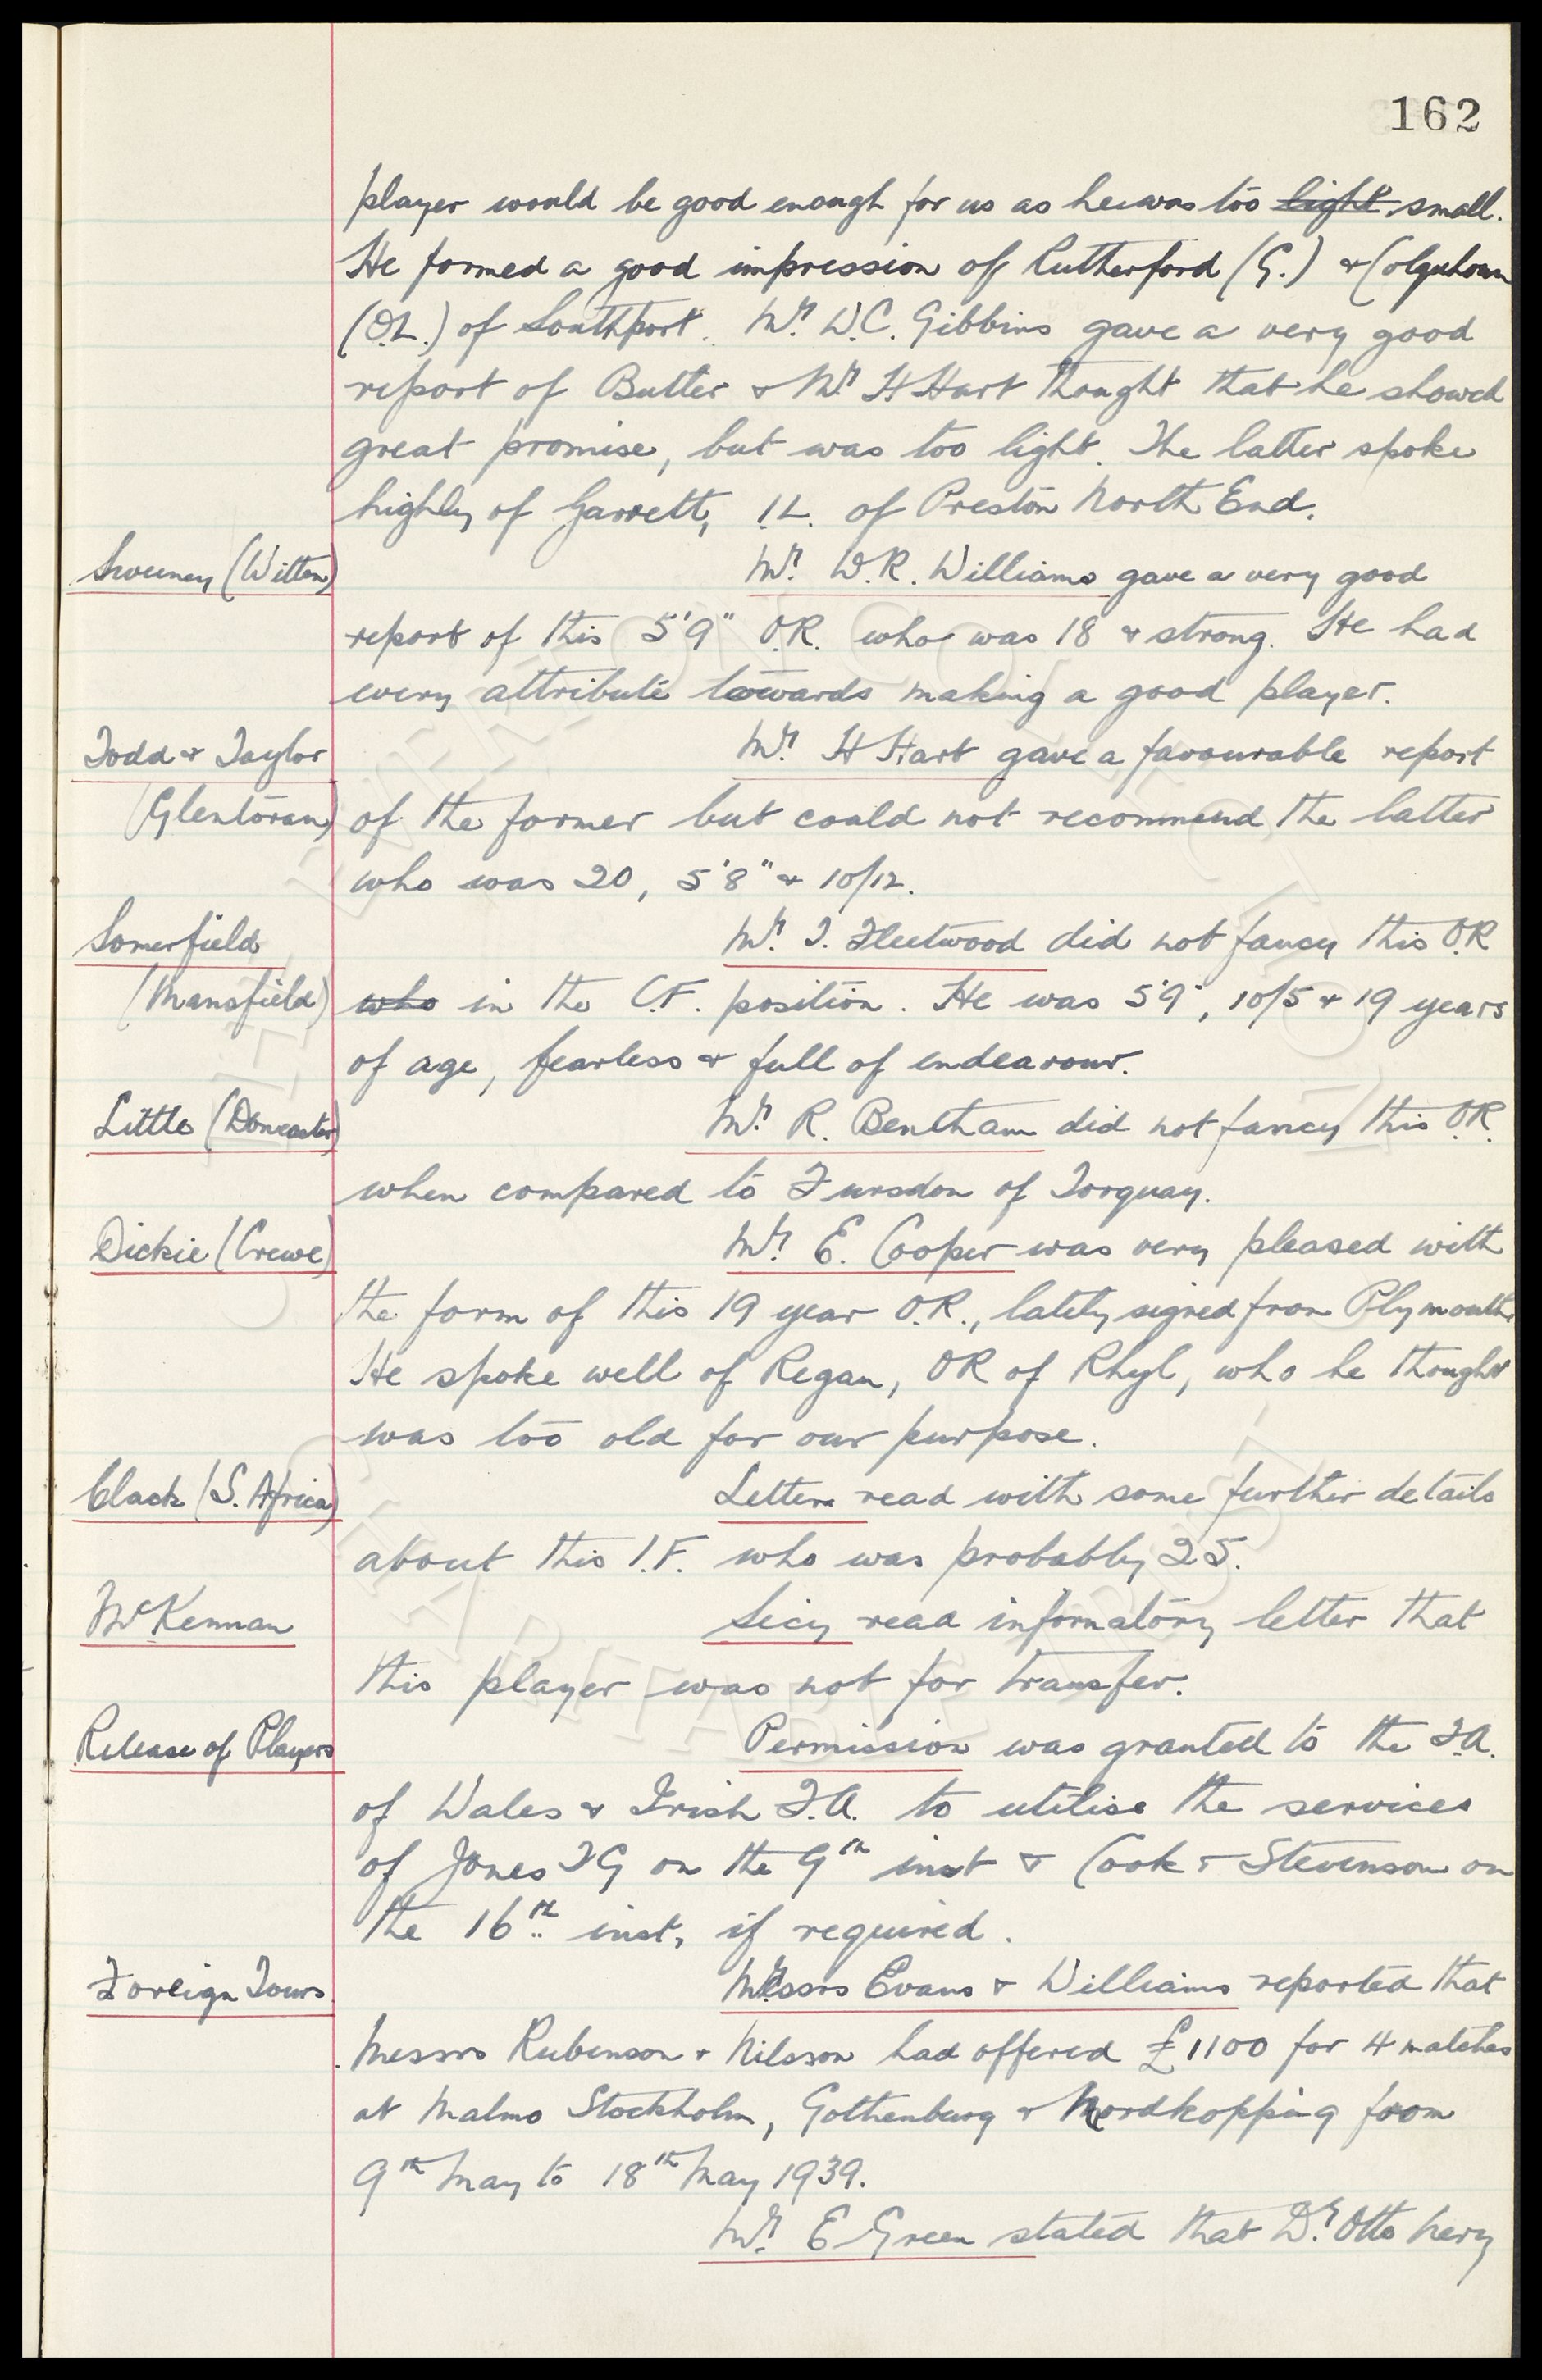 162
player would be good enough for us as he was too light small.
He formed a good impression of Rutherford (G.) & Colquhoun
(O.L.) of Southport. Mr. W.C. Gibbins gave a very good
report of Butler & Mr. H Hart thought that he showed
great promise, but was too light. The latter spoke
highly of Garrett, I.L. of Preston North End.
Sweeney (Witton) Mr. W.R. Williams gave a very good
report of this 5'9" O.R. who was 18 & strong. He had
every attribute towards making a good player.
Todd & Taylor Mr. H Hart gave a favourable report
(Glentoran) of the former but could not recommend the latter
who was 20, 5'8" & 10/12.
Somerfield Mr. T. Fleetwood did not fancy this O.R
(Mansfield) who in the C.F. position. He was 5'9", 10/5 & 19 years
of age, fearless & full of endeavour.
Little (Doncaster) Mr. R. Bentham did not fancy this O.R.
when compared to Fursdon of Torquay.
Dickie (Crewe) Mr. E. Cooper was very pleased with
the form of this 19 year O.R., lately signed from Plymouth.
He spoke well of Regan, OR of Rhyl, who he thought
was too old for our purpose.
Clack (S. Africa) Letters read with some further details
about this I.F. who was probably 25.
McKennan Secy read informatory letter that
this player was not for transfer.
Release of Players Permission was granted to the F.A.
of Wales & Irish F.A. to utilise the services
of Jones TG on the 9th inst & Cook & Stevenson on
the 16th inst, if required.
Foreign Tours Messrs Evans & Williams reported that
Messrs Rubenson & Nilsson had offered £1100 for 4 matches
at Malmo Stockholm, Gothenburg & Nordkopping from
9th May to 18th May 1939.
Mr. E Green stated that Dr. Otto